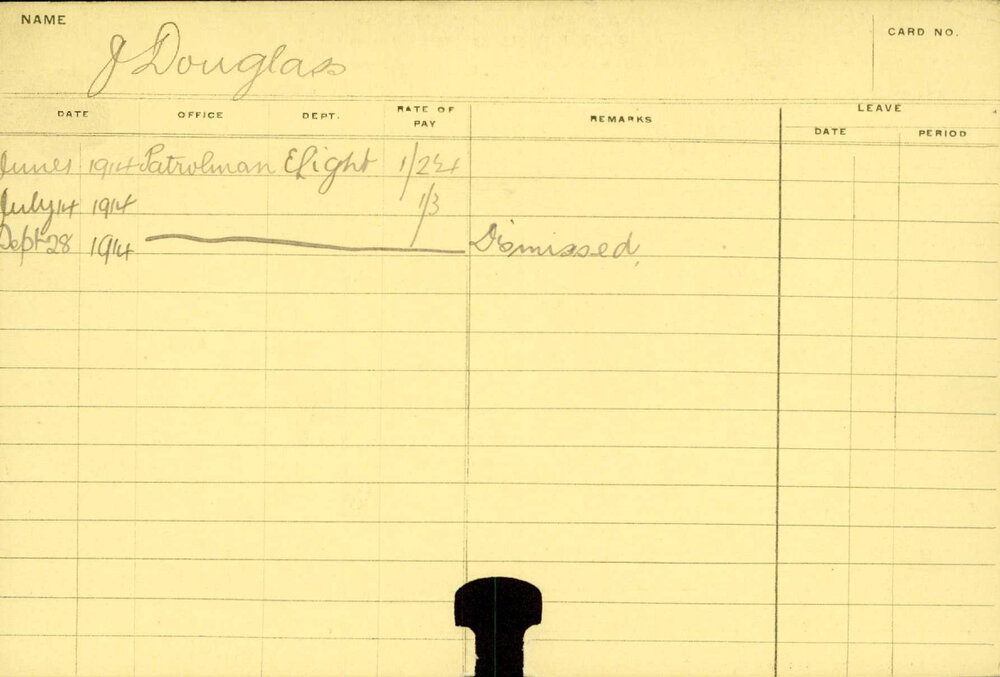 NAME
J Douglass
CARD NO.
DATE OFFICE DEPT. RATE OF PAY REMARKS LEAVE
DATE PERIOD
1914 Patrolman E Light
July 14 1914 1/3
Sept 28 1914 Dismissed.